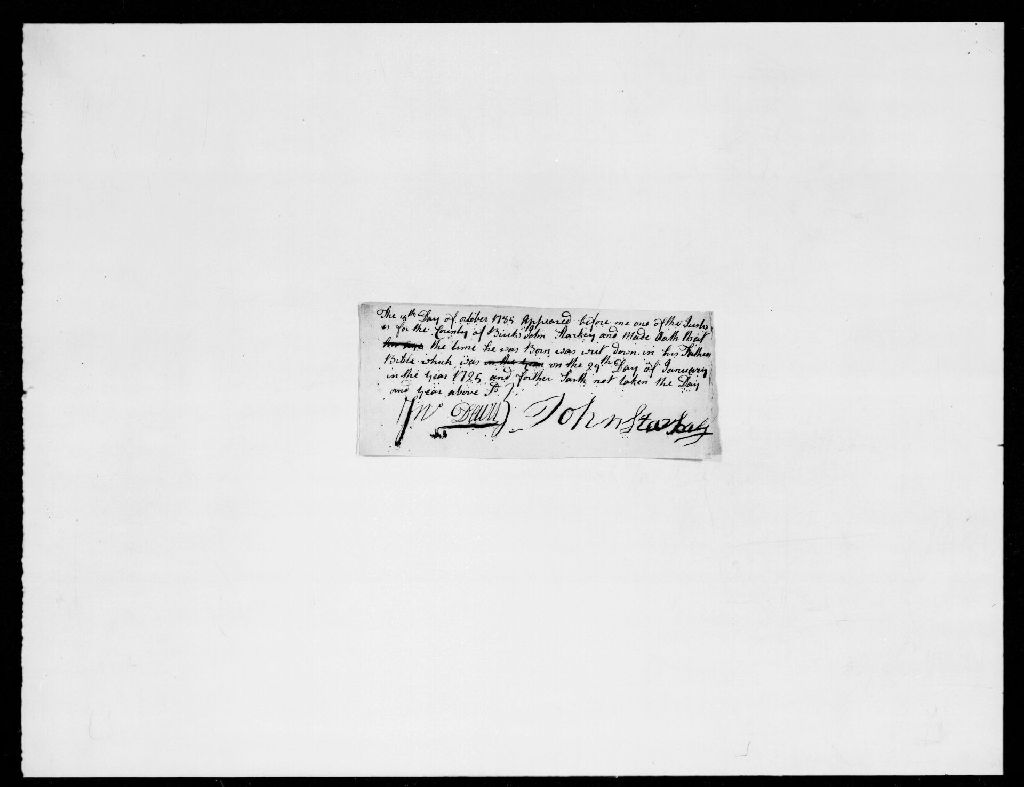 The Day of october 1785 Appeared before me one of the Justic
es for the County of Bucks John Starkey and Made Oath that
the time he was Born was wret down in his Father
Bible which was on the 29th Day of January
in the year 1725 and forther Saith not taken the Day
and year above Sd
Jno Davis John Starkey